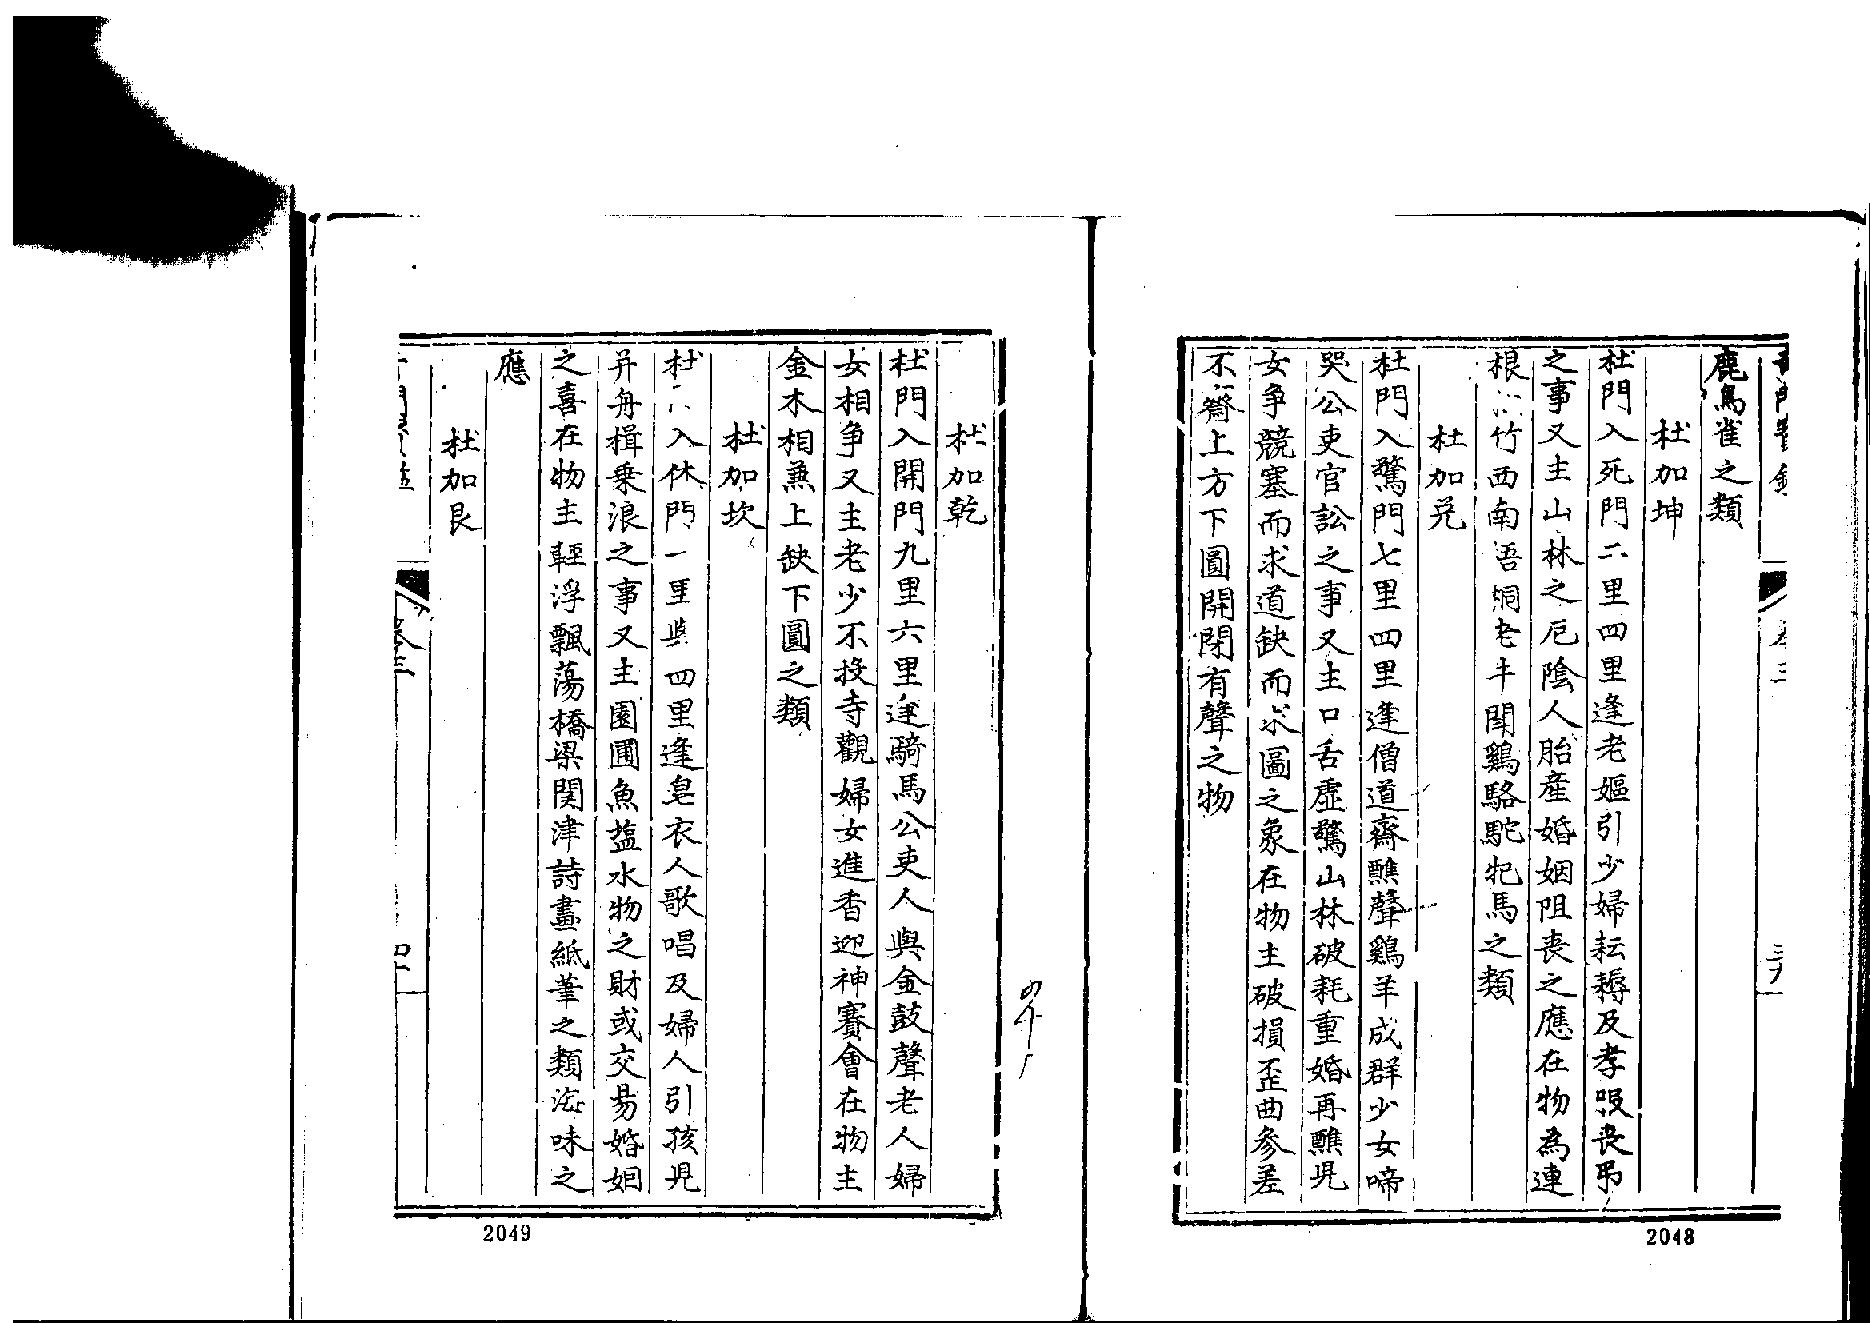 卷三
三九
鹿鳥雀之類
杜加坤
杜門入死門二里四里逢老嫗引少婦耘耨及孝服喪吊
之事又主山林之厄陰人胎產婚姻阻喪之應在物為連
根竹西南梧桐老牛聞鷄駱駝牝馬之類
杜加兑
杜門入驚門七里四里逢僧道齋醮聲鷄羊成群少女啼
哭公吏官訟之事又主口舌虛驚山林破耗重婚再醮見
女争競塞而求道缺而求圖之象在物主破損歪曲參差
不齊上方下圓開閉有聲之物
2048
杜加乾
杜門入開門九里六里逢騎馬公吏人與金鼓聲老人婦
女相争又主老少不投寺觀婦女進香迎神賽會在物主
金木相兼上缺下圓之類
杜加坎
杜入休門一里與四里逢皂衣人歌唱及婦人引孩兒
并舟楫乗浪之事又主園圃魚塩水物之財或交易婚姻
之喜在物主輕浮飄蕩橋梁関津詩畫紙筆之類海味之
應
杜加艮
卷三
四十
2049